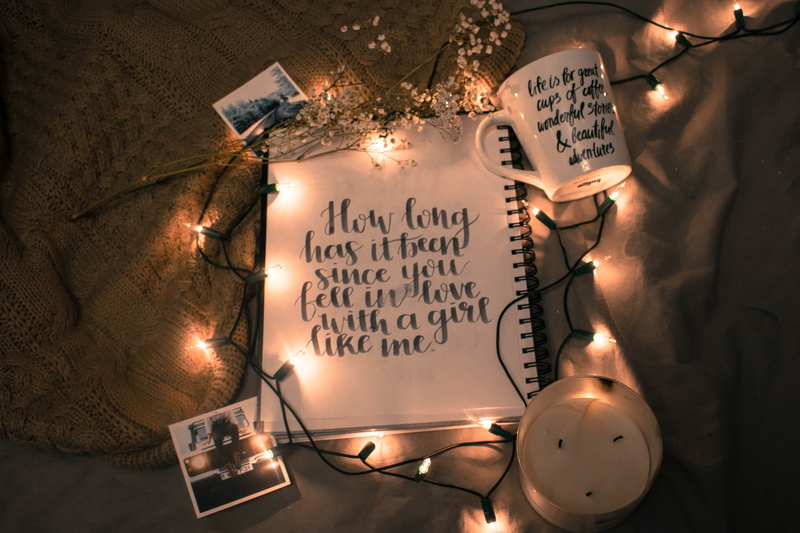 How long
has it been
since you
fell in love
with a girl
like me.
life is for great
cups of coffee
wonderful stories
& beautiful
adventures